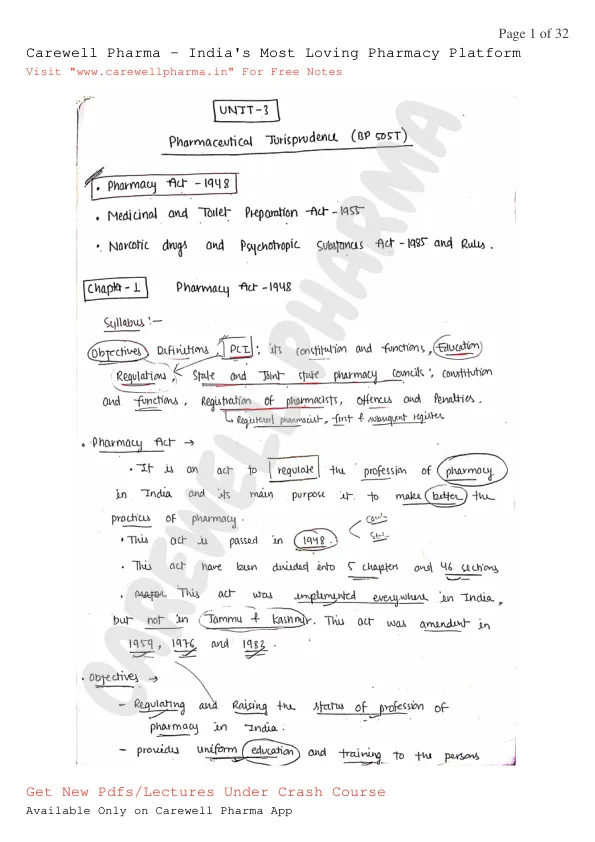 Page 1 of 32
Carewell Pharma - India's Most Loving Pharmacy Platform
Visit "www.carewellpharma.in" For Free Notes
UNIT-3
Pharmaceutical Jurisprudence (BP 505T)
• Pharmacy Act - 1948
• Medicinal and Toilet Preparation Act - 1955
• Narcotic drugs and Psychotropic Substances Act - 1985 and Rules.
Chapter - 1 Pharmacy Act - 1948
Syllabus :-
Objectives, Definitions, PCI; its constitution and functions, Education
Regulations, State and Joint state pharmacy councils; constitution
and functions, Registration of pharmacists, Offences and Penalties.
↳ Registered pharmacist, first & subsequent register
• Pharmacy Act →
• It is an act to regulate the profession of pharmacy
in India and its main purpose is to make better the
practices of pharmacy.
• This act is passed in 1948.
• This act have been divided into 5 chapter and 46 sections
• This act was implemented everywhere in India,
but not in Jammu & Kashmir. This act was amendent in
1959, 1976, and 1982.
• Objectives →
- Regulating and Raising the status of profession of
pharmacy in India.
- provides uniform education and training to the persons
CAREWELL PHARMA
Get New Pdfs/Lectures Under Crash Course
Available Only on Carewell Pharma App